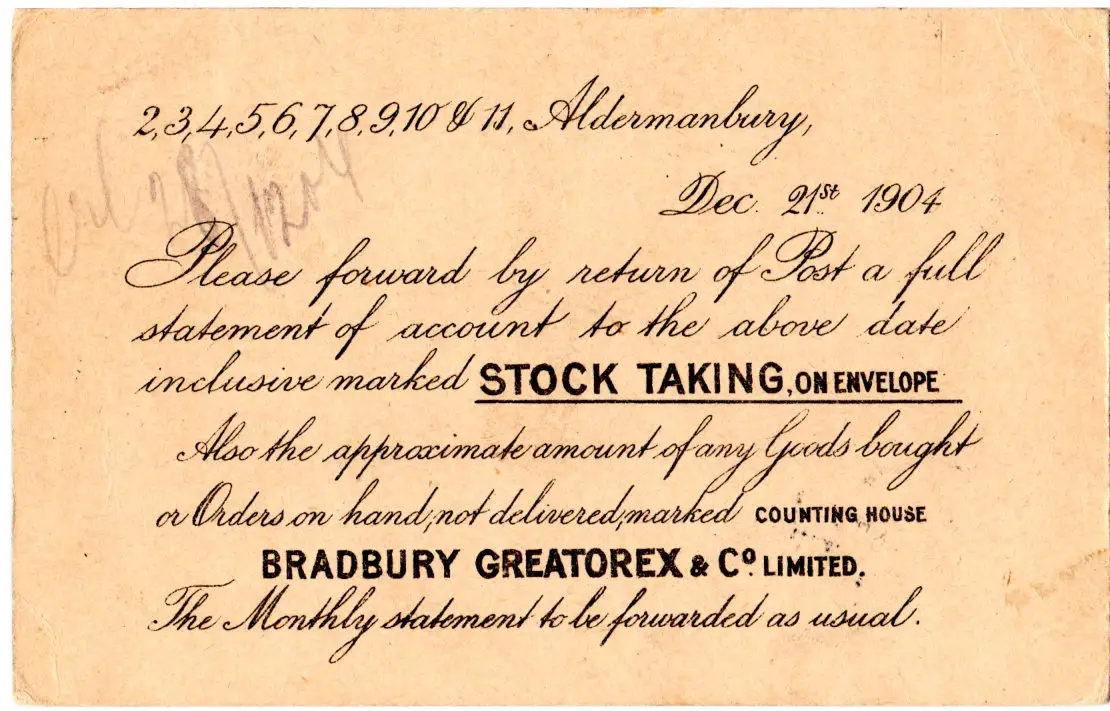 2,3,4,5,6,7,8,9,10 & 11, Aldermanbury,
Dec. 21st 1904
Please forward by return of Post a full
statement of account to the above date
inclusive marked STOCK TAKING, ON ENVELOPE
Also the approximate amount of any Goods bought
or Orders on hand, not delivered, marked COUNTING HOUSE
BRADBURY GREATOREX & Co. LIMITED.
The Monthly statement to be forwarded as usual.